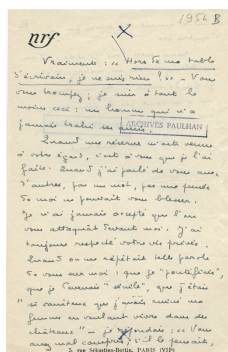 1954 B
nrf
Vraiment : « Hors de ma table
d'écrivain, je ne suis rien ? » – Vous
vous trompez ; je suis à tout le
moins ceci : un homme qui n'a
jamais trahi ses amis.
ARCHIVES PAULHAN
Quand une réserve m'est venue
à votre égard, c'est à vous que je l'ai
faite. Quand j'ai parlé de vous avec
d'autres, pas un mot, pas une pensée
de moi ne pouvait vous blesser.
Je n'ai jamais accepté que l'on
vous attaquât devant moi. J'ai
toujours respecté votre vie privée.
Quand on me répétait telle parole
de vous sur moi : que je "pontifiais",
que je devenais "sénile", que j'étais
"si vaniteux que j'avais ruiné ma
femme en voulant vivre dans des
châteaux" – je répondais : « Vous
avez mal compris, s'il le pensait,
5, rue Sébastien-Bottin, PARIS (VIIᵉ)